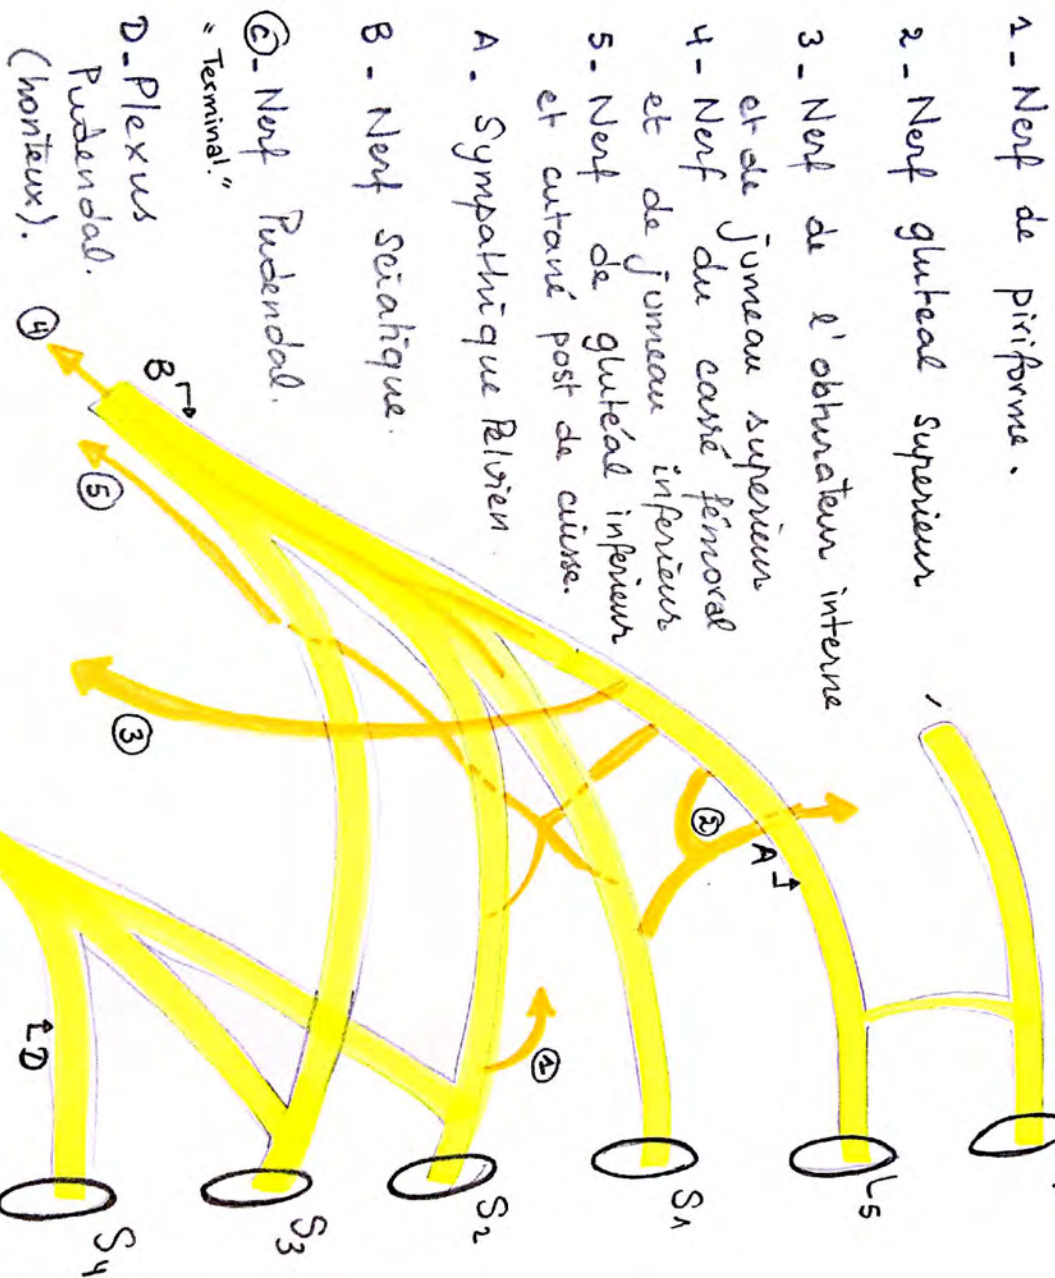 1 - Nerf de piriforme.
2 - Nerf gluteal superieur
3 - Nerf de l'obturateur interne
et de jumeau superieur
4 - Nerf du carré fémoral
et de jumeau inferieur
5 - Nerf de glutéal inferieur
et cutané post de cuisse.
A. Sympathique Pelvien
B - Nerf Sciatique.
C - Nerf Pudendal.
"Terminal."
D - Plexus
Pudendal.
(honteux).
L5
S1
S2
S3
S4
A
B
D
1
2
3
4
5